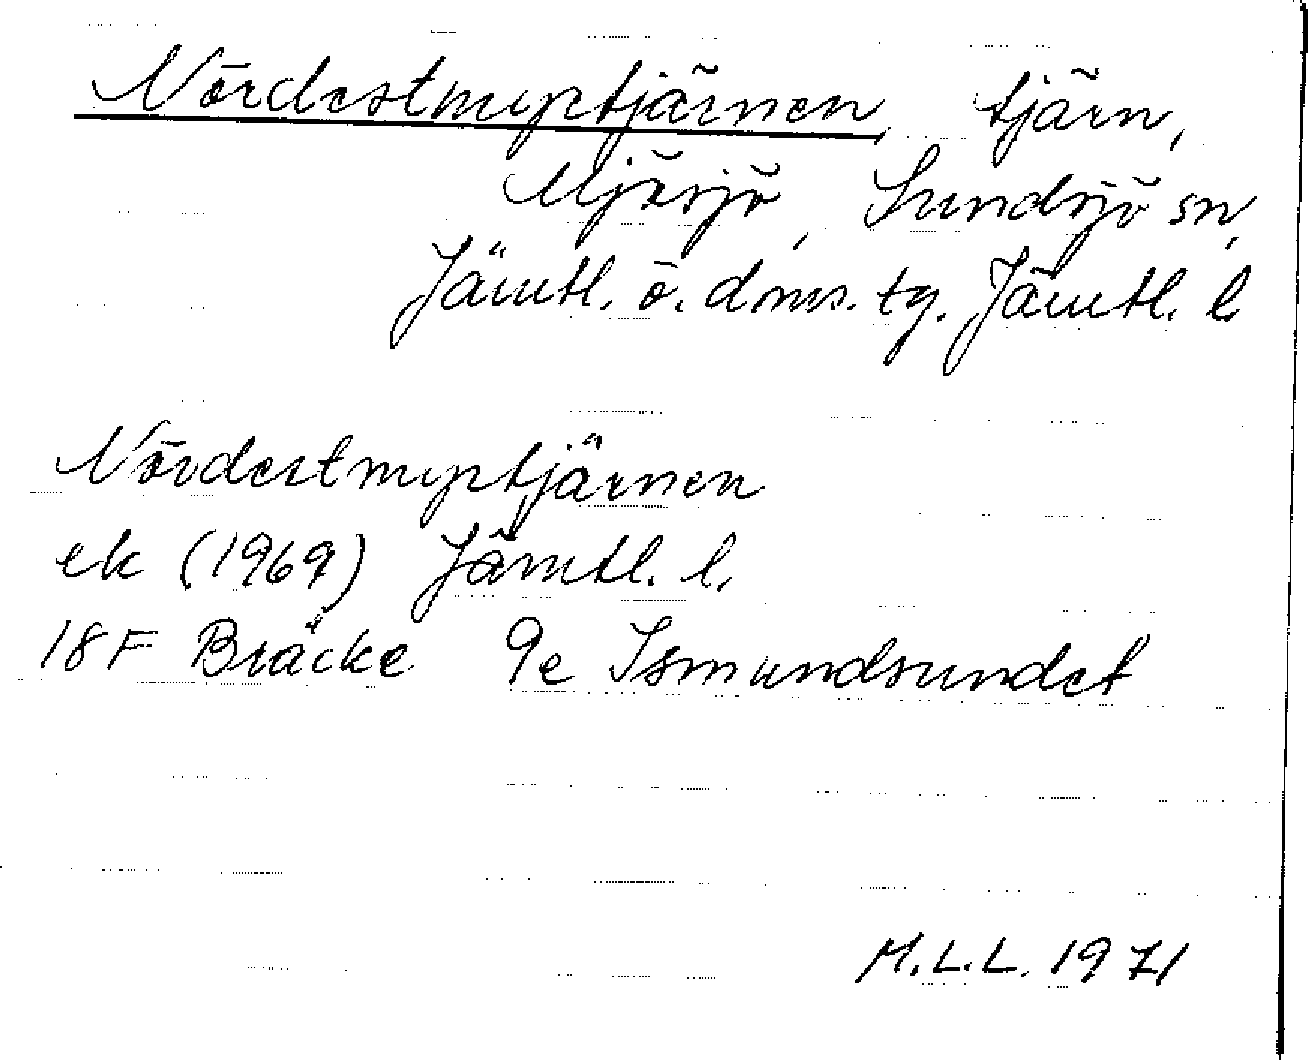 Nördestmyrtjärnen, tjärn,
Mjösjö, Sundsjö sn,
Jämtl. ö. dms. tg. Jämtl. l.
Nördestmyrtjärnen
ek (1969) Jämtl. l.
18F Bräcke 9e Ismundsundet
M.L.L. 1971